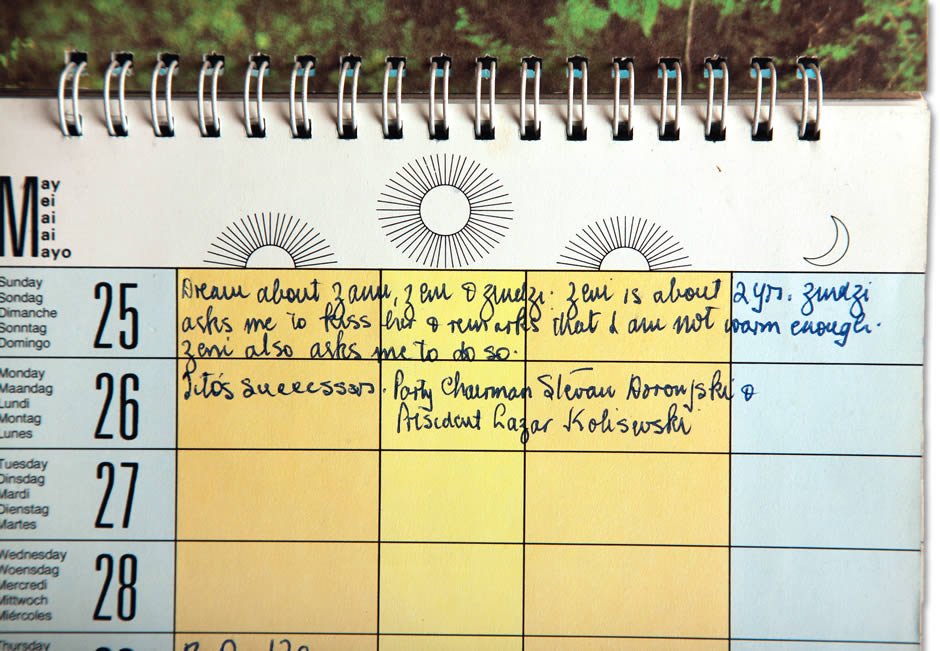 May
Mei
Mai
Mai
Mayo
Sunday
Sondag
Dimanche
Sonntag
Domingo
25
Dream about Zami, Zeni & Zindzi. Zeni is about 2 yrs. Zindzi
asks me to kiss her & remarks that I am not warm enough.
Zeni also asks me to do so.
Monday
Maandag
Lundi
Montag
Lunes
26
Tito's successors. Party Chairman Stevan Doronjski &
President Lazar Kolisevski
Tuesday
Dinsdag
Mardi
Dienstag
Martes
27
Wednesday
Woensdag
Mercredi
Mittwoch
Miércoles
28
Thursday